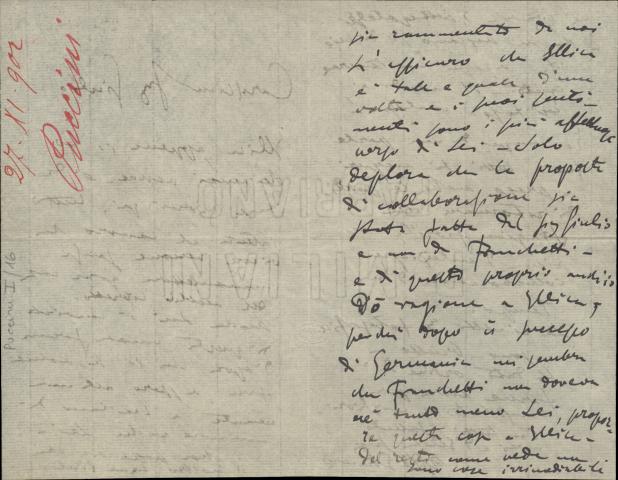 27. XI. 902
Puccini
Puccini I/16
sia rammentato da noi
L'assicuro che Illica
è tale e quale d'una
volta e i suoi senti-
menti sono i più affettuosi
verso di Lei – Solo
deplora che la proposta
di collaborazione sia
stata fatta dal sig Giulio
e non da Franchetti –
e di questo proprio
Dò ragione a Illica,
perchè dopo il successo
di Germania mi sembra
che Franchetti non doveva
nè tanto meno Lei, propor-
re questa cosa a Illica –
Del resto come vede non
sono cose irrimediabili